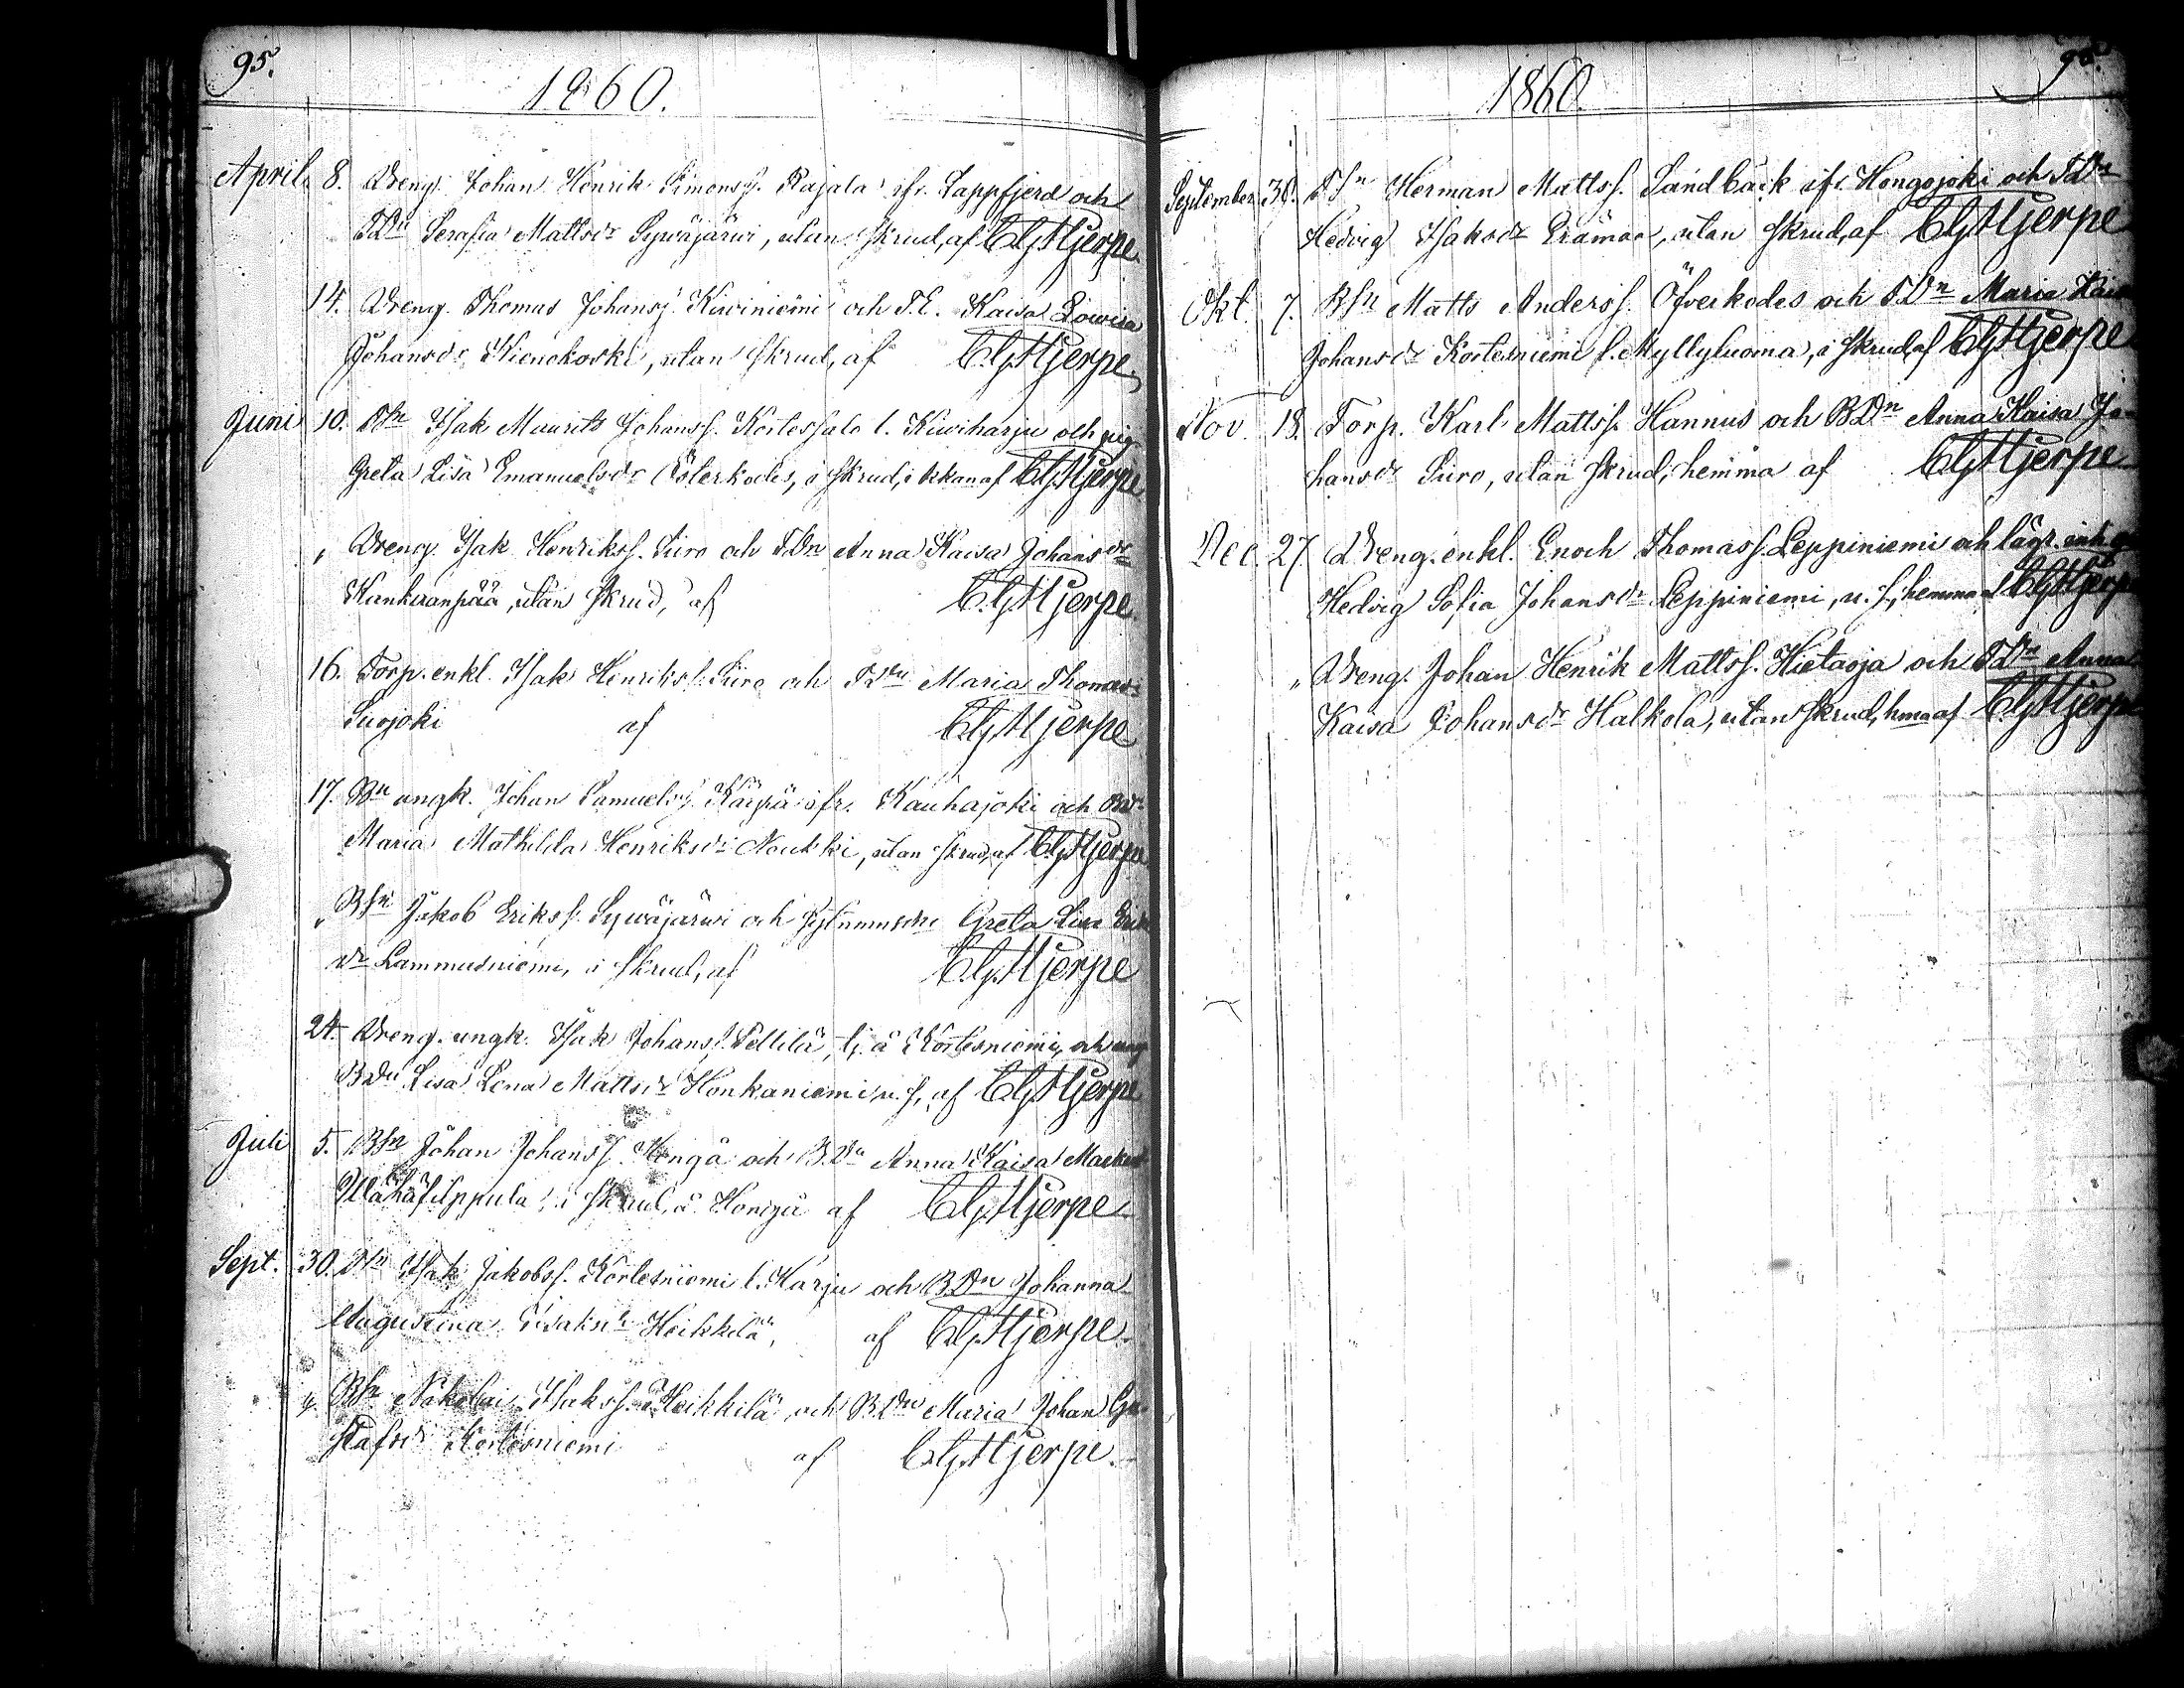 95.
1860.
April 8. Dreng. Johan Henrik Simonss. Rajala ifr. Lappfjerd och
TDn Serafia Mattsdr Sywäjärwi, utan skrud, af CGHjerpe.
14. Dreng. Thomas Johanss. Kiviniemi och T.E. Kaisa Lowisa
Johansdr Kienokoski, utan skrud, af CGHjerpe
Juni 10. TSn Isak Maurits Johanss. Kortessalo l. Kiwiharju och pig.
Greta Lisa Emanuelsdr Österkodes, i skrud, i kkan af CGHjerpe
" Dreng Isak Henrikss. Siiro och TDn Anna Kaisa Johansdr
Kankaanpää, utan skrud, af CGHjerpe.
16. Torp. enkl. Isak Henrikss. Siiro och TDn Maria Thomasdr
Suojoki af CGHjerpe
17. Bn ungk. Johan Samuelss. Kärpä ifr. Kauhajoki och BDr
Maria Mathilda Henriksdr Noukki, utan skrud, af CGHjerpe
" BSn Jakob Erikss. Sywäjärwi och Greta Lisa
dr Lammusniemi, i skrud, af CGHjerpe
24. Dreng. ungk. Isak Johanss. Peltilä, tj. å Kortesniemi, och
BDn Lisa Lena Mattsdr Honkaniemi u. s, af CGHjerpe
Juli 5. BSn Johan Johanss. Hongä och B.Dn Anna Kaisa
Ylähäfilppula, i skrud, å Hongä af CGHjerpe
Sept. 30. TSn Isak Jakobss. Kortesniemi l. Harju och BDn Johanna
Augustina Isaksdr Heikkilä, af CGHjerpe.
" BSn Nikolai Isakss. Heikkilä och BDn Maria Johan Gu-
stafsdr Kortesniemi af CGHjerpe.
1860
September 30. TSn Herman Mattss. Sandback ifr. Hongojoki och TDn
Hedvig Isaksdr Erämaa, utan skrud, af CGHjerpe
Okt. 7. BSn Matts Anderss. Öfverkodes och TDn Maria
Johansdr Kortesniemi l. Myllyluoma, i skrud, af CGHjerpe
Nov. 18. Torp. Karl Mattss. Hannus och BDn Anna Kaisa Jo-
hansdr Siiro, utan skrud, hemma af CGHjerpe
Dec. 27. Dreng. enkl. Enoch Thomass. Leppiniemi och lägr.
Hedvig Sofia Johansdr Leppiniemi, u. s, hemma af CGHjerpe
" Dreng. Johan Henrik Mattss. Hietaoja och TDn Anna
Kaisa Johansdr Halkola, utan skrud, hma af CGHjerpe